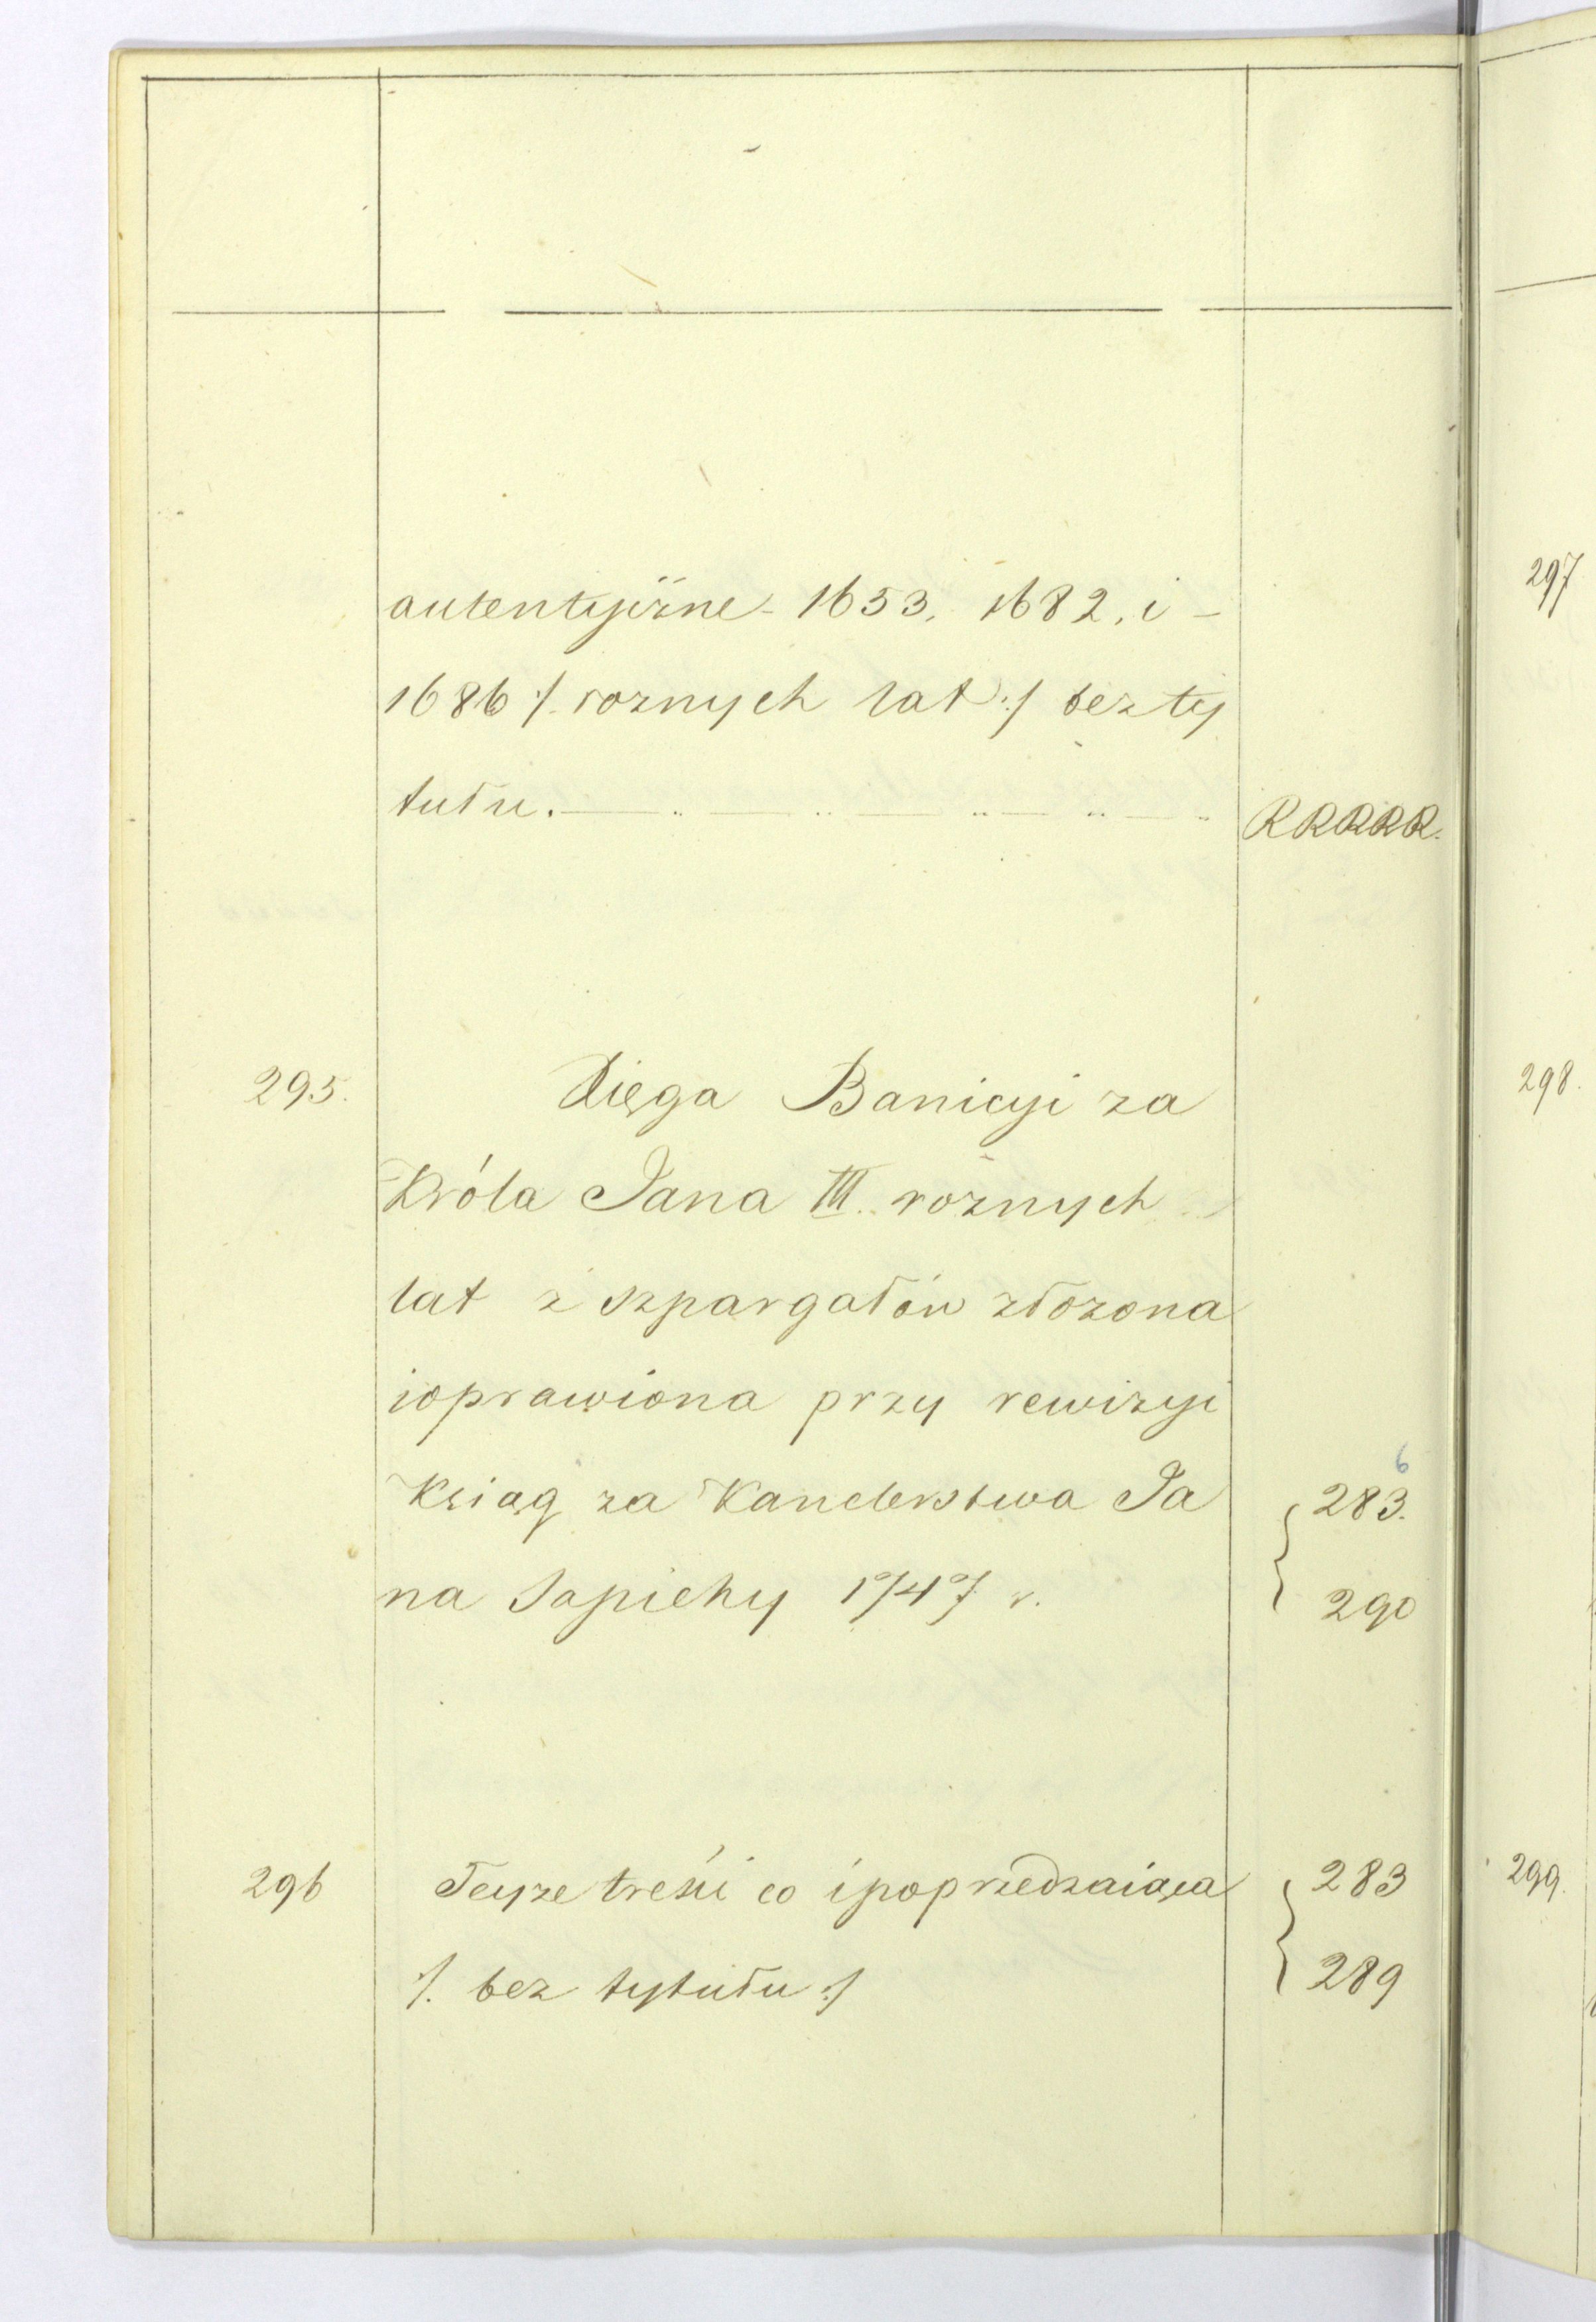 autentyczne - 1653. 1682. i -
1686 /. roznych lat :/ bez ty
tułu. — .. — .. — .. — .. — .. RRRRR.
295. Xięga Banicyi za
Króla Jana III. roznych
lat z szpargałów złozona
i oprawiona przy rewizyi
Ksiąg za Kanclerstwa Ja 6 283.
na Sapiehy 1747 r. 290
296 Teyze treści co i poprzedzaiąca 283
/. bez tytułu :/ 289
297
298.
299.